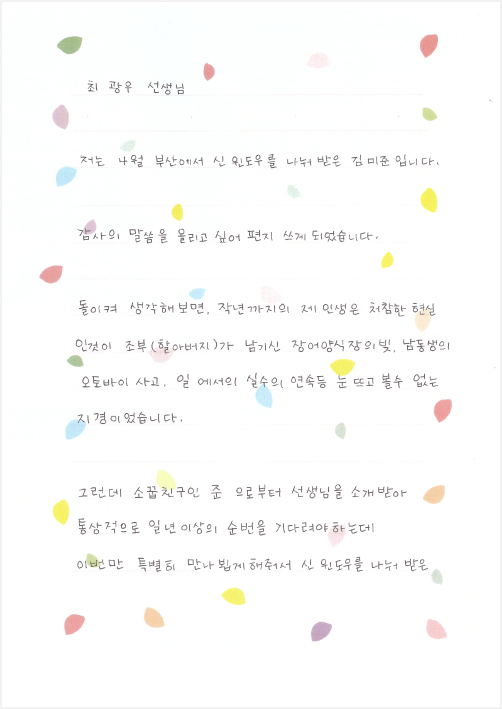 최 광우 선생님
저는 4월 부산에서 신 윈도우를 나눠 받은 김미준입니다.
감사의 말씀을 올리고 싶어 편지 쓰게 되었습니다.
돌이켜 생각해보면, 작년까지의 제 인생은 처참한 현실
인것이 조부(할아버지)가 남기신 장어양식장의 빚, 남동생의
오토바이 사고, 일에서의 실수의 연속등 눈 뜨고 볼수 없는
지경이었습니다.
그런데 소꿉친구인 준 으로부터 선생님을 소개받아
통상적으로 일년이상의 순번을 기다려야하는데
이번만 특별히 만나 뵙게해줘서 신 윈도우를 나눠 받은